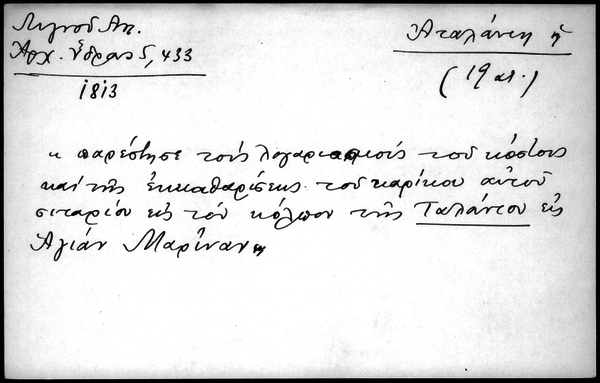 Λιγνοδ Απ.
Αρχ. Ύδρας 5, 433
1813
Αταλάντη ἡ
(19 αι.)
« παρέστησε τούς λογαριασμούς τοῦ κόστους
καί τῆς ἐκκαθαρίσεως τοῦ καρίκου αὐτοῦ
σιταρίου εἰς τόν κόλπον τῆς Ταλάντου εἰς
Ἁγιάν Μαρίναν »